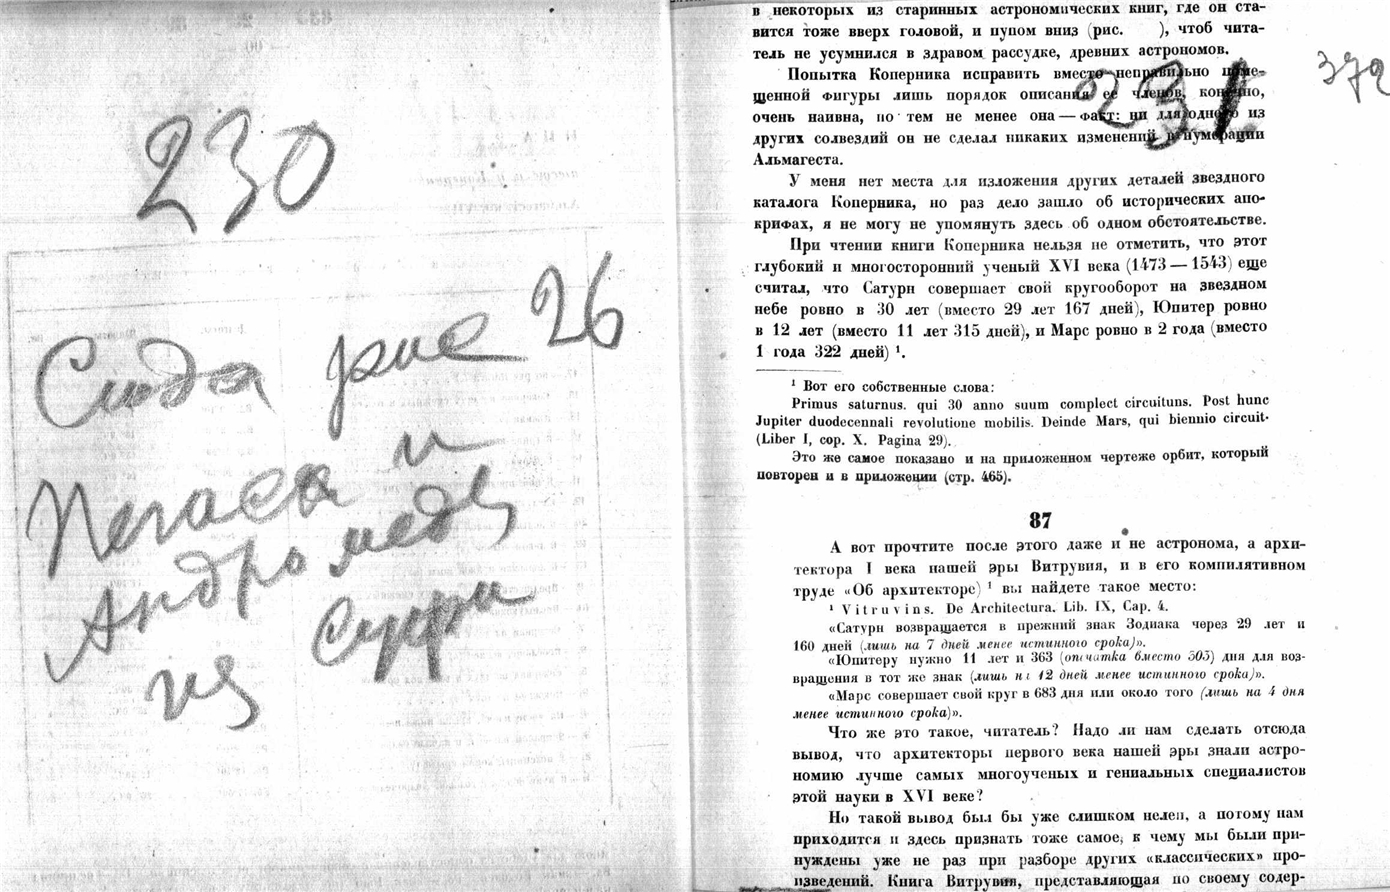 230
Сюда рис 26
Пегаса и
Андромеды
из Суфи
в некоторых из старинных астрономических книг, где он ста-
вится тоже вверх головой, и пупом вниз (рис. ), чтоб чита-
тель не усумнился в здравом рассудке, древних астрономов.
372
Попытка Коперника исправить вместо неправильно поме-
231
щенной фигуры лишь порядок описания ее членов, конечно,
очень наивна, но тем не менее она — факт: ни для одного из
других солвездий он не сделал никаких изменений в нумерации
Альмагеста.
У меня нет места для изложения других деталей звездного
каталога Коперника, но раз дело зашло об исторических апо-
крифах, я не могу не упомянуть здесь об одном обстоятельстве.
При чтении книги Коперника нельзя не отметить, что этот
глубокий и многосторонний ученый XVI века (1473 — 1543) еще
считал, что Сатурн совершает свой кругооборот на звездном
небе ровно в 30 лет (вместо 29 лет 167 дней), Юпитер ровно
в 12 лет (вместо 11 лет 315 дней), и Марс ровно в 2 года (вместо
1 года 322 дней) ¹.
¹ Вот его собственные слова:
Primus saturnus. qui 30 anno suum complect circuituns. Post hunc
Jupiter duodecennali revolutione mobilis. Deinde Mars, qui biennio circuit-
(Liber I, cop. X. Pagina 29).
Это же самое показано и на приложенном чертеже орбит, который
повторен и в приложении (стр. 465).
87
А вот прочтите после этого даже и не астронома, а архи-
тектора I века нашей эры Витрувия, и в его компилятивном
труде «Об архитекторе) ¹ вы найдете такое место:
¹ Vitruvins. De Architectura. Lib. IX, Cap. 4.
«Сатурн возвращается в прежний знак Зодиака через 29 лет и
160 дней (лишь на 7 дней менее истинного срока)».
«Юпитеру нужно 11 лет и 363 (опечатка вместо 303) дня для воз-
вращения в тот же знак (лишь на 12 дней менее истинного срока)».
«Марс совершает свой круг в 683 дня или около того (лишь на 4 дня
менее истинного срока)».
Что же это такое, читатель? Надо ли нам сделать отсюда
вывод, что архитекторы первого века нашей эры знали астро-
номию лучше самых многоученых и гениальных специалистов
этой науки в XVI веке?
Но такой вывод был бы уже слишком нелеп, а потому нам
приходится и здесь признать тоже самое, к чему мы были при-
нуждены уже не раз при разборе других «классических» про-
изведений. Книга Витрувия, представляющая по своему содер-